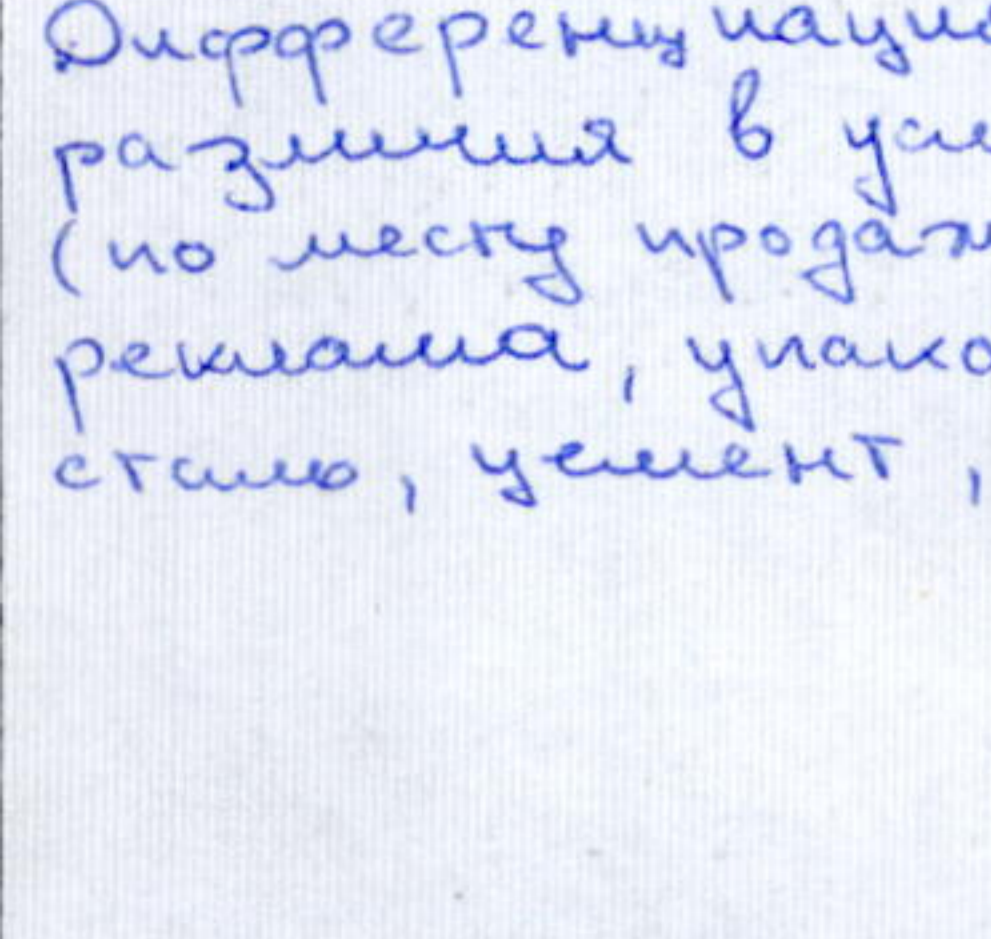 Дифференциацио
различия в усл
(по месту продаж
реклама, упако
сталь, цемент,